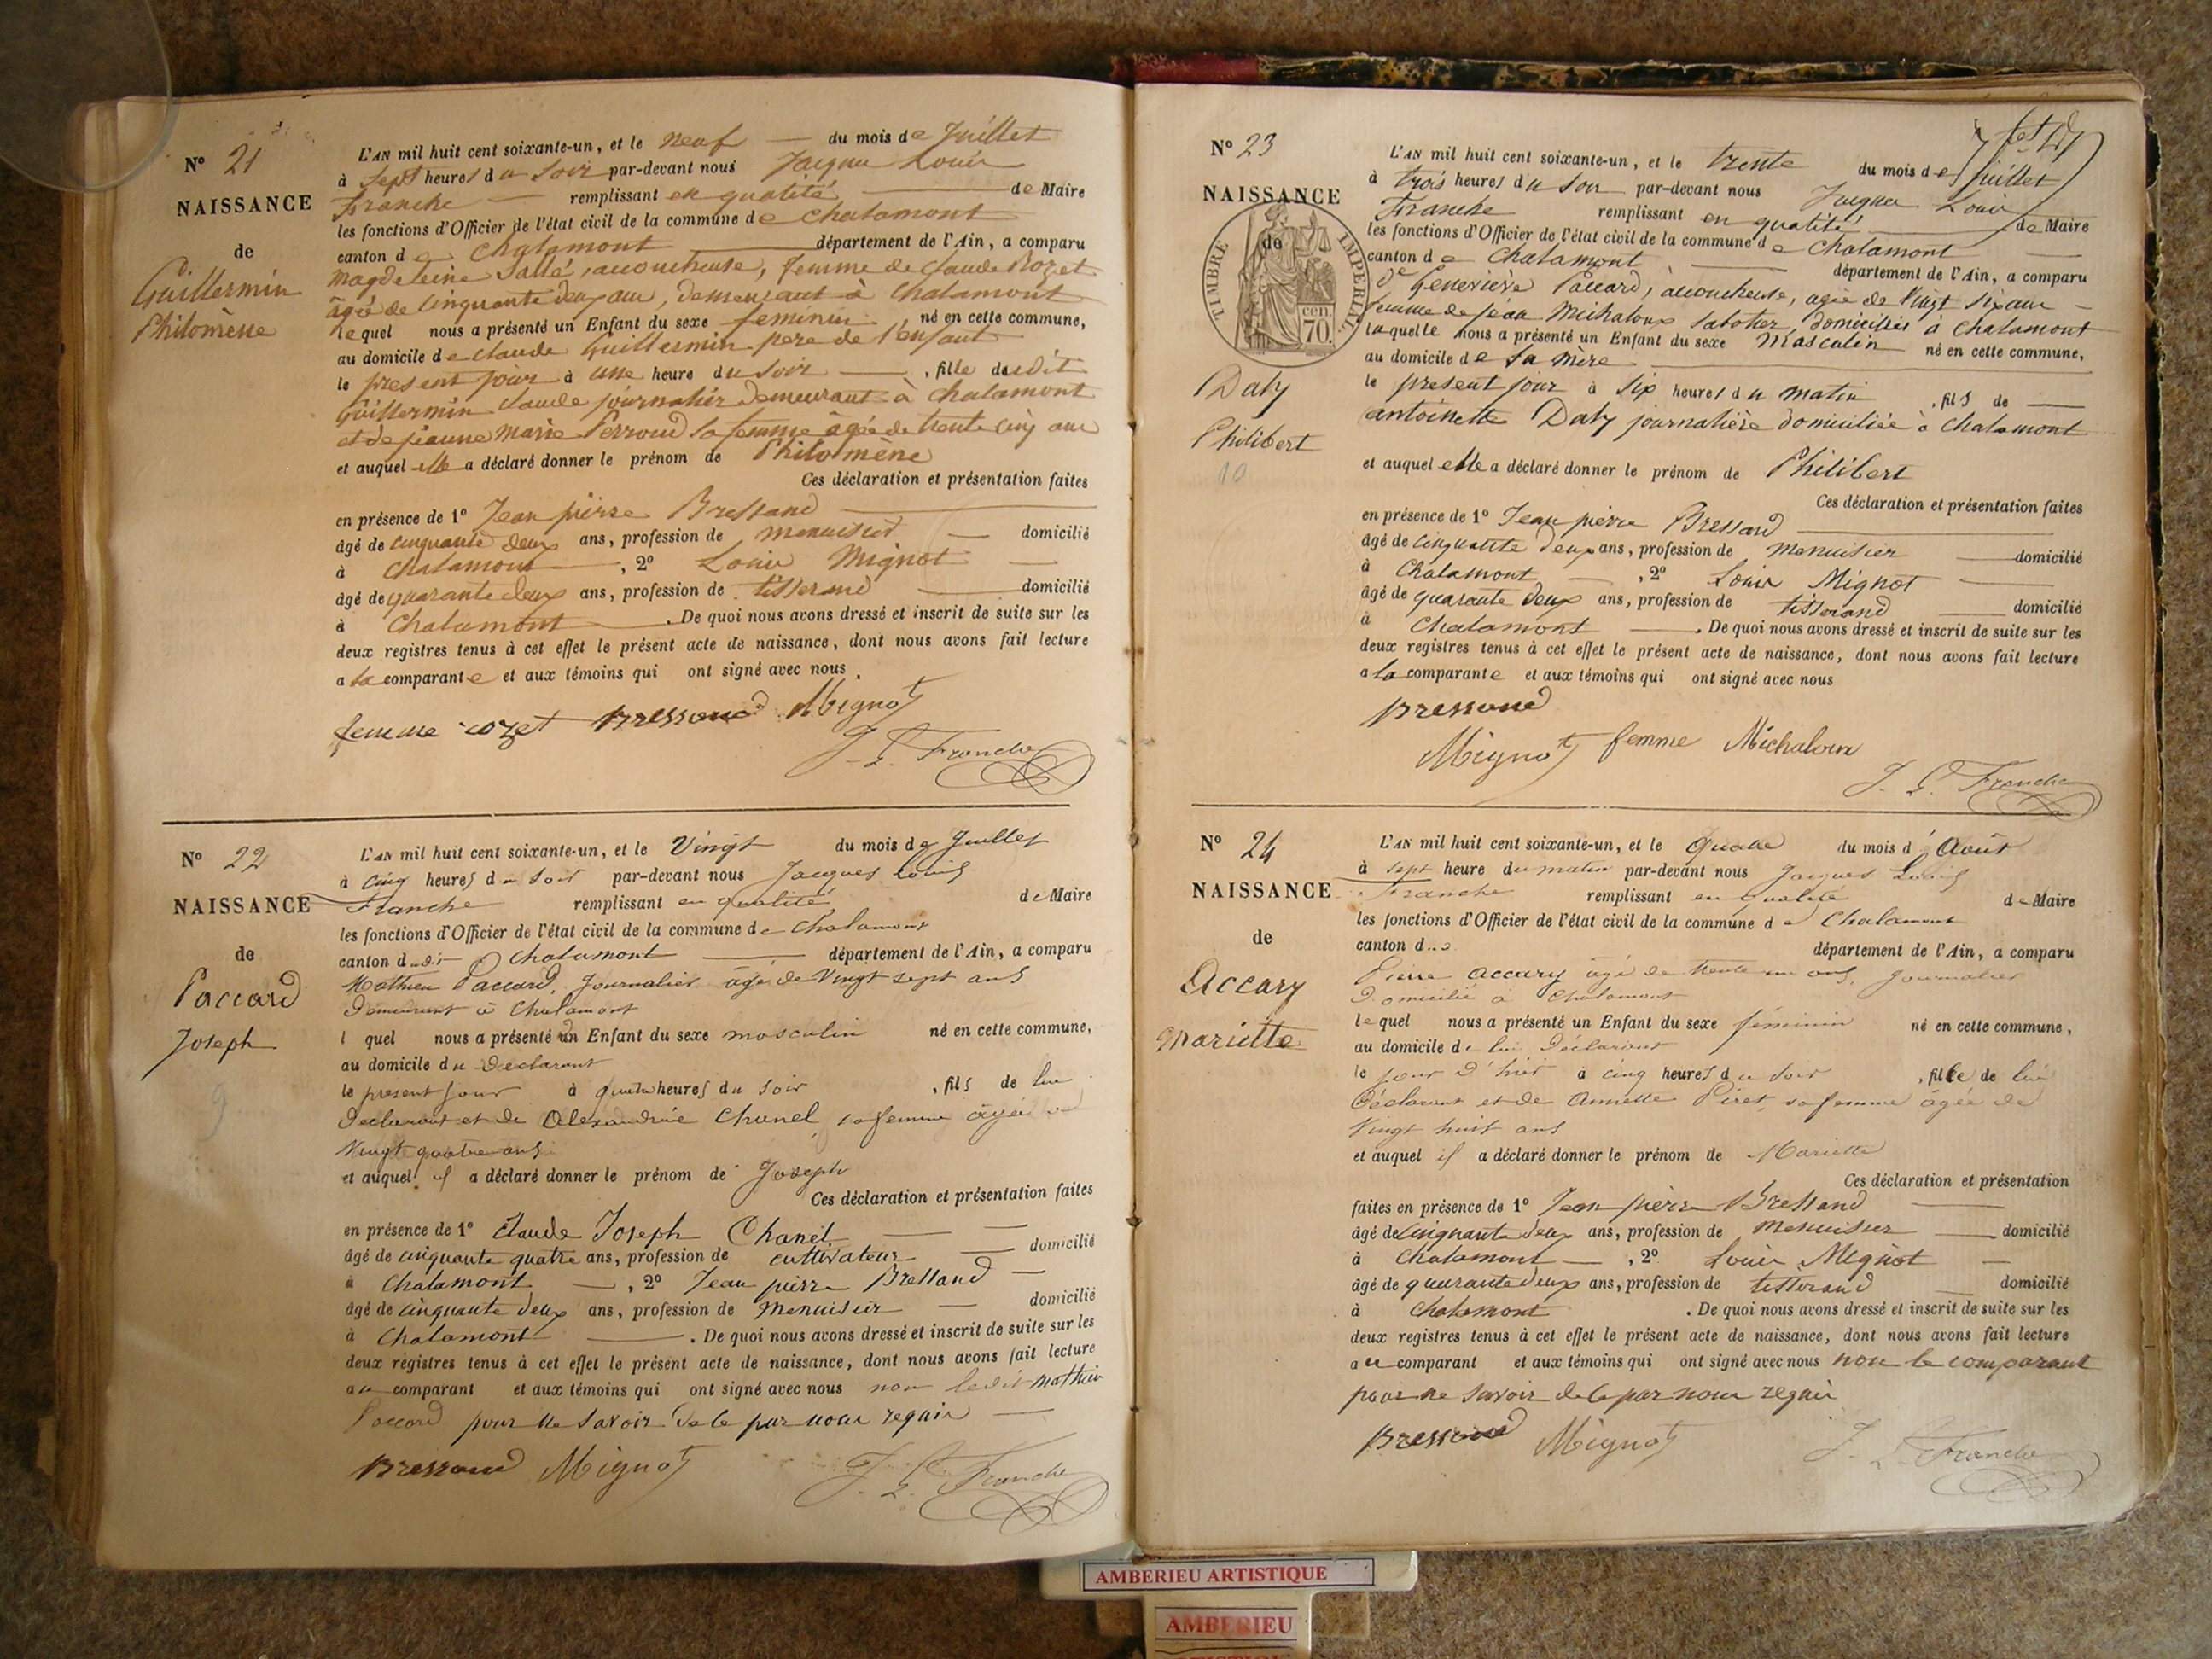 N° 21
NAISSANCE
de
Guillermin
Philomène
L'AN mil huit cent soixante-un, et le neuf du mois de Juillet
à sept heures du soir par-devant nous Jacques Louis
Franche remplissant en qualité de Maire
les fonctions d'Officier de l'état civil de la commune de Chalamont
canton de Chalamont département de l'Ain, a comparu
Magdeleine Sallé, accoucheuse, femme de Claude Rozet
âgé de cinquante deux ans, demeurant à Chalamont
lequel nous a présenté un Enfant du sexe feminin né en cette commune,
au domicile de Claude Guillermin père de l'enfant
le présent jour à une heure du soir, fille dudit
Guillermin Claude journalier demeurant à Chalamont
et de jeanne Marie Perroud sa femme âgée de trente cinq ans
et auquel elle a déclaré donner le prénom de Philomène
Ces déclaration et présentation faites
en présence de 1° Jean pierre Bressand
âgé de cinquante deux ans, profession de menuisier domicilié
à Chalamont, 2° Louis Mignot
âgé de quarante deux ans, profession de tisserand domicilié
à Chalamont. De quoi nous avons dressé et inscrit de suite sur les
deux registres tenus à cet effet le présent acte de naissance, dont nous avons fait lecture
a la comparante et aux témoins qui ont signé avec nous
femme rozet Bressand Mignot
J. L. Franche
N° 22
NAISSANCE
de
Paccard
Joseph
9
L'AN mil huit cent soixante-un, et le Vingt du mois de Juillet
à cinq heures du soir par-devant nous Jacques Louis
Franche remplissant en qualité de Maire
les fonctions d'Officier de l'état civil de la commune de Chalamont
canton dudit Chalamont département de l'Ain, a comparu
Mathieu Paccard, Journalier âgé de Vingt sept ans
Demeurant à Chalamont
l quel nous a présenté un Enfant du sexe masculin né en cette commune,
au domicile du Déclarant
le présent jour à quatre heures du soir, fils de lui
Déclarant et de Alexandrine Chanel, sa femme âgée de
Vingt quatre ans
et auquel il a déclaré donner le prénom de Joseph
Ces déclaration et présentation faites
en présence de 1° Claude Joseph Chanel
âgé de cinquante quatre ans, profession de cultivateur domicilié
à Chalamont, 2° Jean pierre Bressand
âgé de cinquante deux ans, profession de Menuisier domicilié
à Chalamont. De quoi nous avons dressé et inscrit de suite sur les
deux registres tenus à cet effet le présent acte de naissance, dont nous avons fait lecture
au comparant et aux témoins qui ont signé avec nous non ledit Mathieu
Paccard pour ne savoir de ce par nous requis
Bressand Mignot J. L. Franche
N° 23
NAISSANCE
de
TIMBRE IMPERIAL
cen 70.
Daty
Philibert
10
L'AN mil huit cent soixante-un, et le trente du mois de juillet
à trois heures du soir par-devant nous Jacques Louis
Franche remplissant en qualité de Maire
les fonctions d'Officier de l'état civil de la commune de Chalamont
canton de Chalamont département de l'Ain, a comparu
de Genevière Paccard, accoucheuse, agée de Vingt six ans
femme de jean Michaloux sabotier, domiciliés à Chalamont
laquelle nous a présenté un Enfant du sexe Masculin né en cette commune,
au domicile de sa mère
le présent jour à six heures du matin, fils de
antoinette Daty journalière domiciliée à Chalamont
et auquel elle a déclaré donner le prénom de Philibert
Ces déclaration et présentation faites
en présence de 1° Jean pierre Bressand
âgé de cinquante deux ans, profession de Menuisier domicilié
à Chalamont, 2° Louis Mignot
âgé de quarante deux ans, profession de tisserand domicilié
à Chalamont. De quoi nous avons dressé et inscrit de suite sur les
deux registres tenus à cet effet le présent acte de naissance, dont nous avons fait lecture
a la comparante et aux témoins qui ont signé avec nous
Bressand
Mignot femme Michaloux
J. L. Franche
N° 24
NAISSANCE
de
Accary
Mariette
L'AN mil huit cent soixante-un, et le Quatre du mois d'Août
à sept heure du matin par-devant nous Jacques Louis
Franche remplissant en qualité de Maire
les fonctions d'Officier de l'état civil de la commune de Chalamont
canton d... département de l'Ain, a comparu
Pierre Accary âgé de trente un ans, Journalier
Domicilié à Chalamont
lequel nous a présenté un Enfant du sexe féminin né en cette commune,
au domicile de lui Déclarant
le jour d'hier à cinq heures du soir, fille de lui
Déclarant et de Annette Piret, sa femme âgée de
Vingt huit ans
et auquel il a déclaré donner le prénom de Mariette
Ces déclaration et présentation
faites en présence de 1° Jean pierre Bressand
âgé de cinquante deux ans, profession de Menuisier domicilié
à Chalamont, 2° Louis Mignot
âgé de quarante deux ans, profession de tisserand domicilié
à Chalamont. De quoi nous avons dressé et inscrit de suite sur les
deux registres tenus à cet effet le présent acte de naissance, dont nous avons fait lecture
au comparant et aux témoins qui ont signé avec nous non le comparant
pour ne savoir de ce par nous requis
Bressand Mignot J. L. Franche
AMBERIEU ARTISTIQUE
AMBERIEU